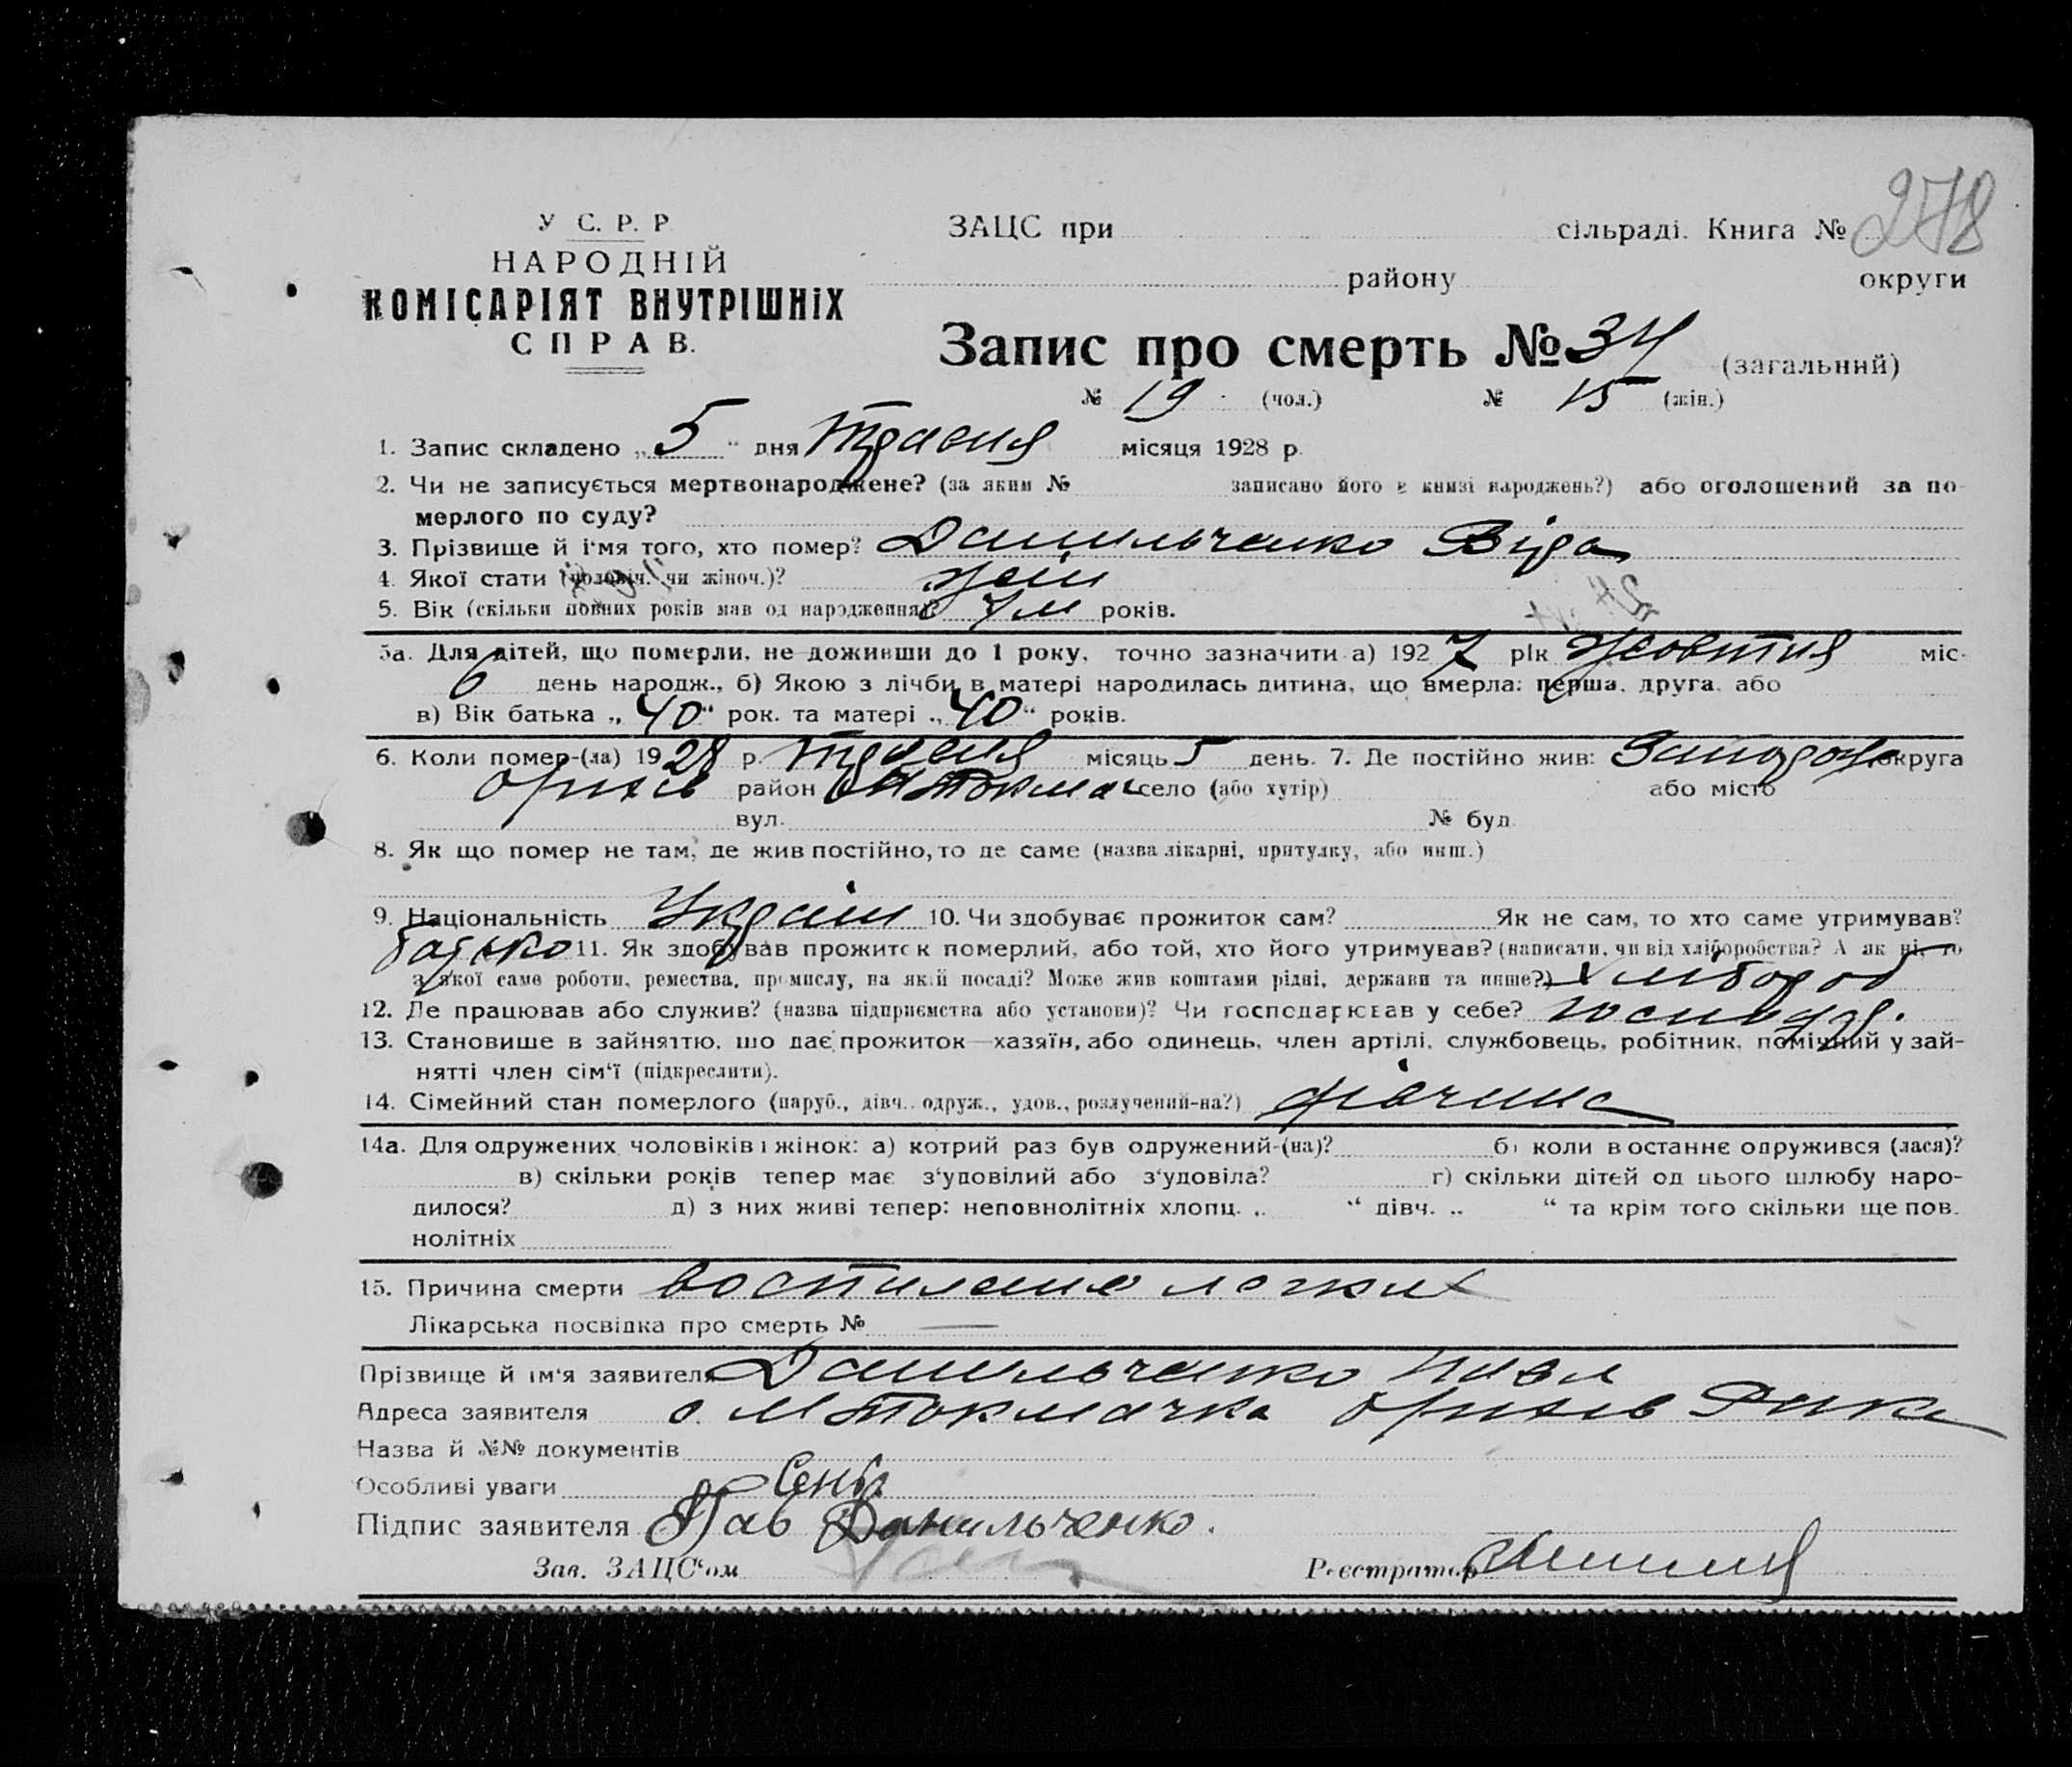 278
У С. Р. Р
НАРОДНІЙ
КОМІСАРІЯТ ВНУТРІШНІХ
СПРАВ.
ЗАЦС при сільраді. Книга №
району округи
Запис про смерть № 34 (загальний)
№ 19 (чол.) № 15 (жін.)
1. Запис складено „5“ дня Травня місяця 1928 р.
2. Чи не записується мертвонароджене? (за яким № записано його в книзі народжень?) або оголошений за по-
мерлого по суду?
3. Прізвище й ім'я того, хто помер? Данильченко Віра
4. Якої стати (чоловіч. чи жіноч.)? жін
5. Вік (скільки повних років мав од народження)? 7 м років.
5а. Для дітей, що померли, не доживши до 1 року, точно зазначити а) 1927 рік Жовтня міс.
6 день народж., б) Якою з лічби в матері народилась дитина, що вмерла: перша, друга, або
в) Вік батька „40“ рок. та матері „40“ років.
6. Коли помер-(ла) 1928 р. травня місяць 5 день. 7. Де постійно жив: округа
Оріхів район М Токмач село (або хутір) або місто
вул. № буд.
8. Як що помер не там, де жив постійно, то де саме (назва лікарні, притулку, або инш.)
9. Національність Україн 10. Чи здобуває прожиток сам? Як не сам, то хто саме утримував?
батько 11. Як здобував прожиток померлий, або той, хто його утримував? (написати, чи від хліборобства? А як ні, то
з якої саме роботи, ремества, промислу, на якій посаді? Може жив коштами рідні, держави та инше?) хлібороб
12. Де працював або служив? (назва підприємства або установи)? Чи господарював у себе? господар.
13. Становище в зайняттю, що дає прожиток—хазяїн, або одинець, член артілі, службовець, робітник, помічний у зай-
нятті член сім'ї (підкреслити).
14. Сімейний стан померлого (паруб., дівч., одруж., удов., розлучений-на?) дівчина
14а. Для одружених чоловіків і жінок: а) котрий раз був одружений-(на)? б) коли в останнє одружився (лася)?
в) скільки років тепер має з'удовілий або з'удовіла? г) скільки дітей од цього шлюбу наро-
дилося? д) з них живі тепер: неповнолітніх хлопц. „ “ дівч. „ “ та крім того скільки ще пов.
нолітніх
15. Причина смерти воспиление легких
Лікарська посвідка про смерть № —
Прізвище й ім'я заявителя Данильченко Павл
Адреса заявителя с. М Токмачка Оріхів Р-на
Назва й №№ документів
Особливі уваги
Підпис заявителя Пав Данильченко.
Зав. ЗАЦС'ом Реєстратор